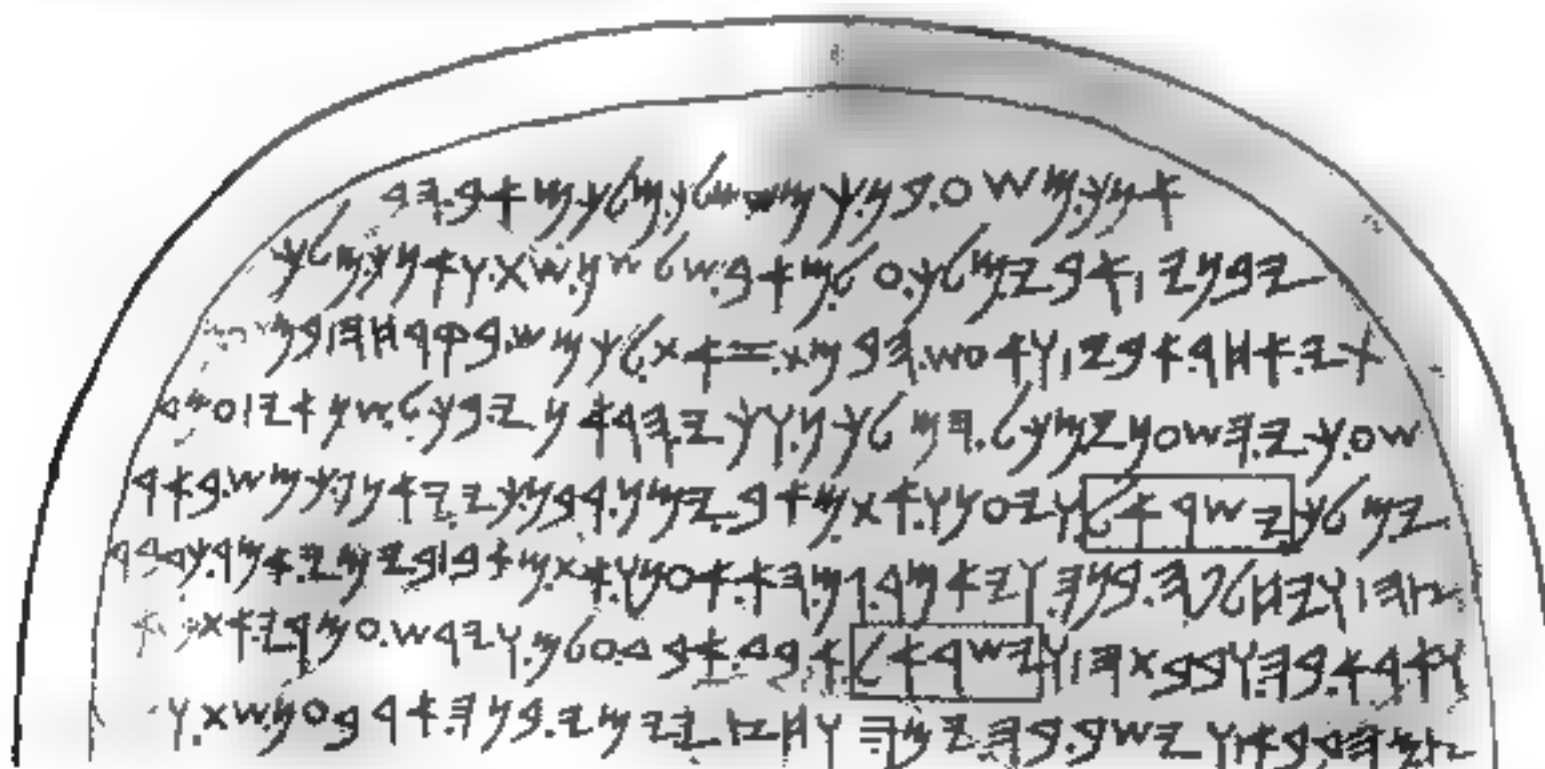 𐤀𐤍𐤊.𐤌𐤔𐤏.𐤁𐤍.𐤊𐤌𐤔𐤌𐤋𐤊.𐤌𐤋𐤊.𐤌𐤀𐤁.𐤄𐤃
𐤉𐤁𐤍𐤉 | 𐤀𐤁𐤉.𐤌𐤋𐤊.𐤏𐤋.𐤌𐤀𐤁.𐤔𐤋𐤔𐤍.𐤔𐤕.𐤅𐤀𐤍𐤊.𐤌𐤋𐤊
𐤕𐤉.𐤀𐤇𐤓.𐤀𐤁𐤉 | 𐤅𐤀𐤏𐤔.𐤄𐤁𐤌𐤕.𐤆𐤀𐤕.𐤋𐤊𐤌𐤔.𐤁𐤒𐤓𐤇𐤄 | 𐤁
𐤔𐤏.𐤊𐤉.𐤄𐤔𐤏𐤍𐤉.𐤌𐤊𐤋.𐤄𐤌𐤋𐤊𐤍.𐤅𐤊𐤉.𐤄𐤓𐤀𐤍𐤉.𐤁𐤊𐤋.𐤔𐤍𐤀𐤉 | 𐤏𐤌𐤓
𐤉.𐤌𐤋𐤊.𐤉𐤔𐤓𐤀𐤋.𐤅𐤉𐤏𐤍𐤅.𐤀𐤕.𐤌𐤀𐤁.𐤉𐤌𐤍.𐤓𐤁𐤍.𐤊𐤉.𐤉𐤀𐤍𐤐.𐤊𐤌𐤔.𐤁𐤀𐤓
𐤑𐤄 | 𐤅𐤉𐤇𐤋𐤐𐤄.𐤁𐤍𐤄.𐤅𐤉𐤀𐤌𐤓.𐤂𐤌.𐤄𐤀.𐤀𐤏𐤍𐤅.𐤀𐤕.𐤌𐤀𐤁 | 𐤁𐤉𐤌𐤉.𐤀𐤌𐤓.𐤊𐤃𐤁𐤓
𐤅𐤀𐤓𐤀.𐤁𐤄.𐤅𐤁𐤁𐤕𐤄 | 𐤅𐤉𐤔𐤓𐤀𐤋.𐤀𐤁𐤃.𐤀𐤁𐤃.𐤏𐤋𐤌.𐤅𐤉𐤓𐤔.𐤏𐤌𐤓𐤉.𐤀𐤕
𐤑.𐤌𐤄𐤃𐤁𐤀 | 𐤅𐤉𐤔𐤁.𐤁𐤄.𐤉𐤌𐤄.𐤅𐤇𐤑𐤉.𐤉𐤌𐤉.𐤁𐤍𐤄.𐤀𐤓𐤁𐤏𐤍.𐤔𐤕.𐤅